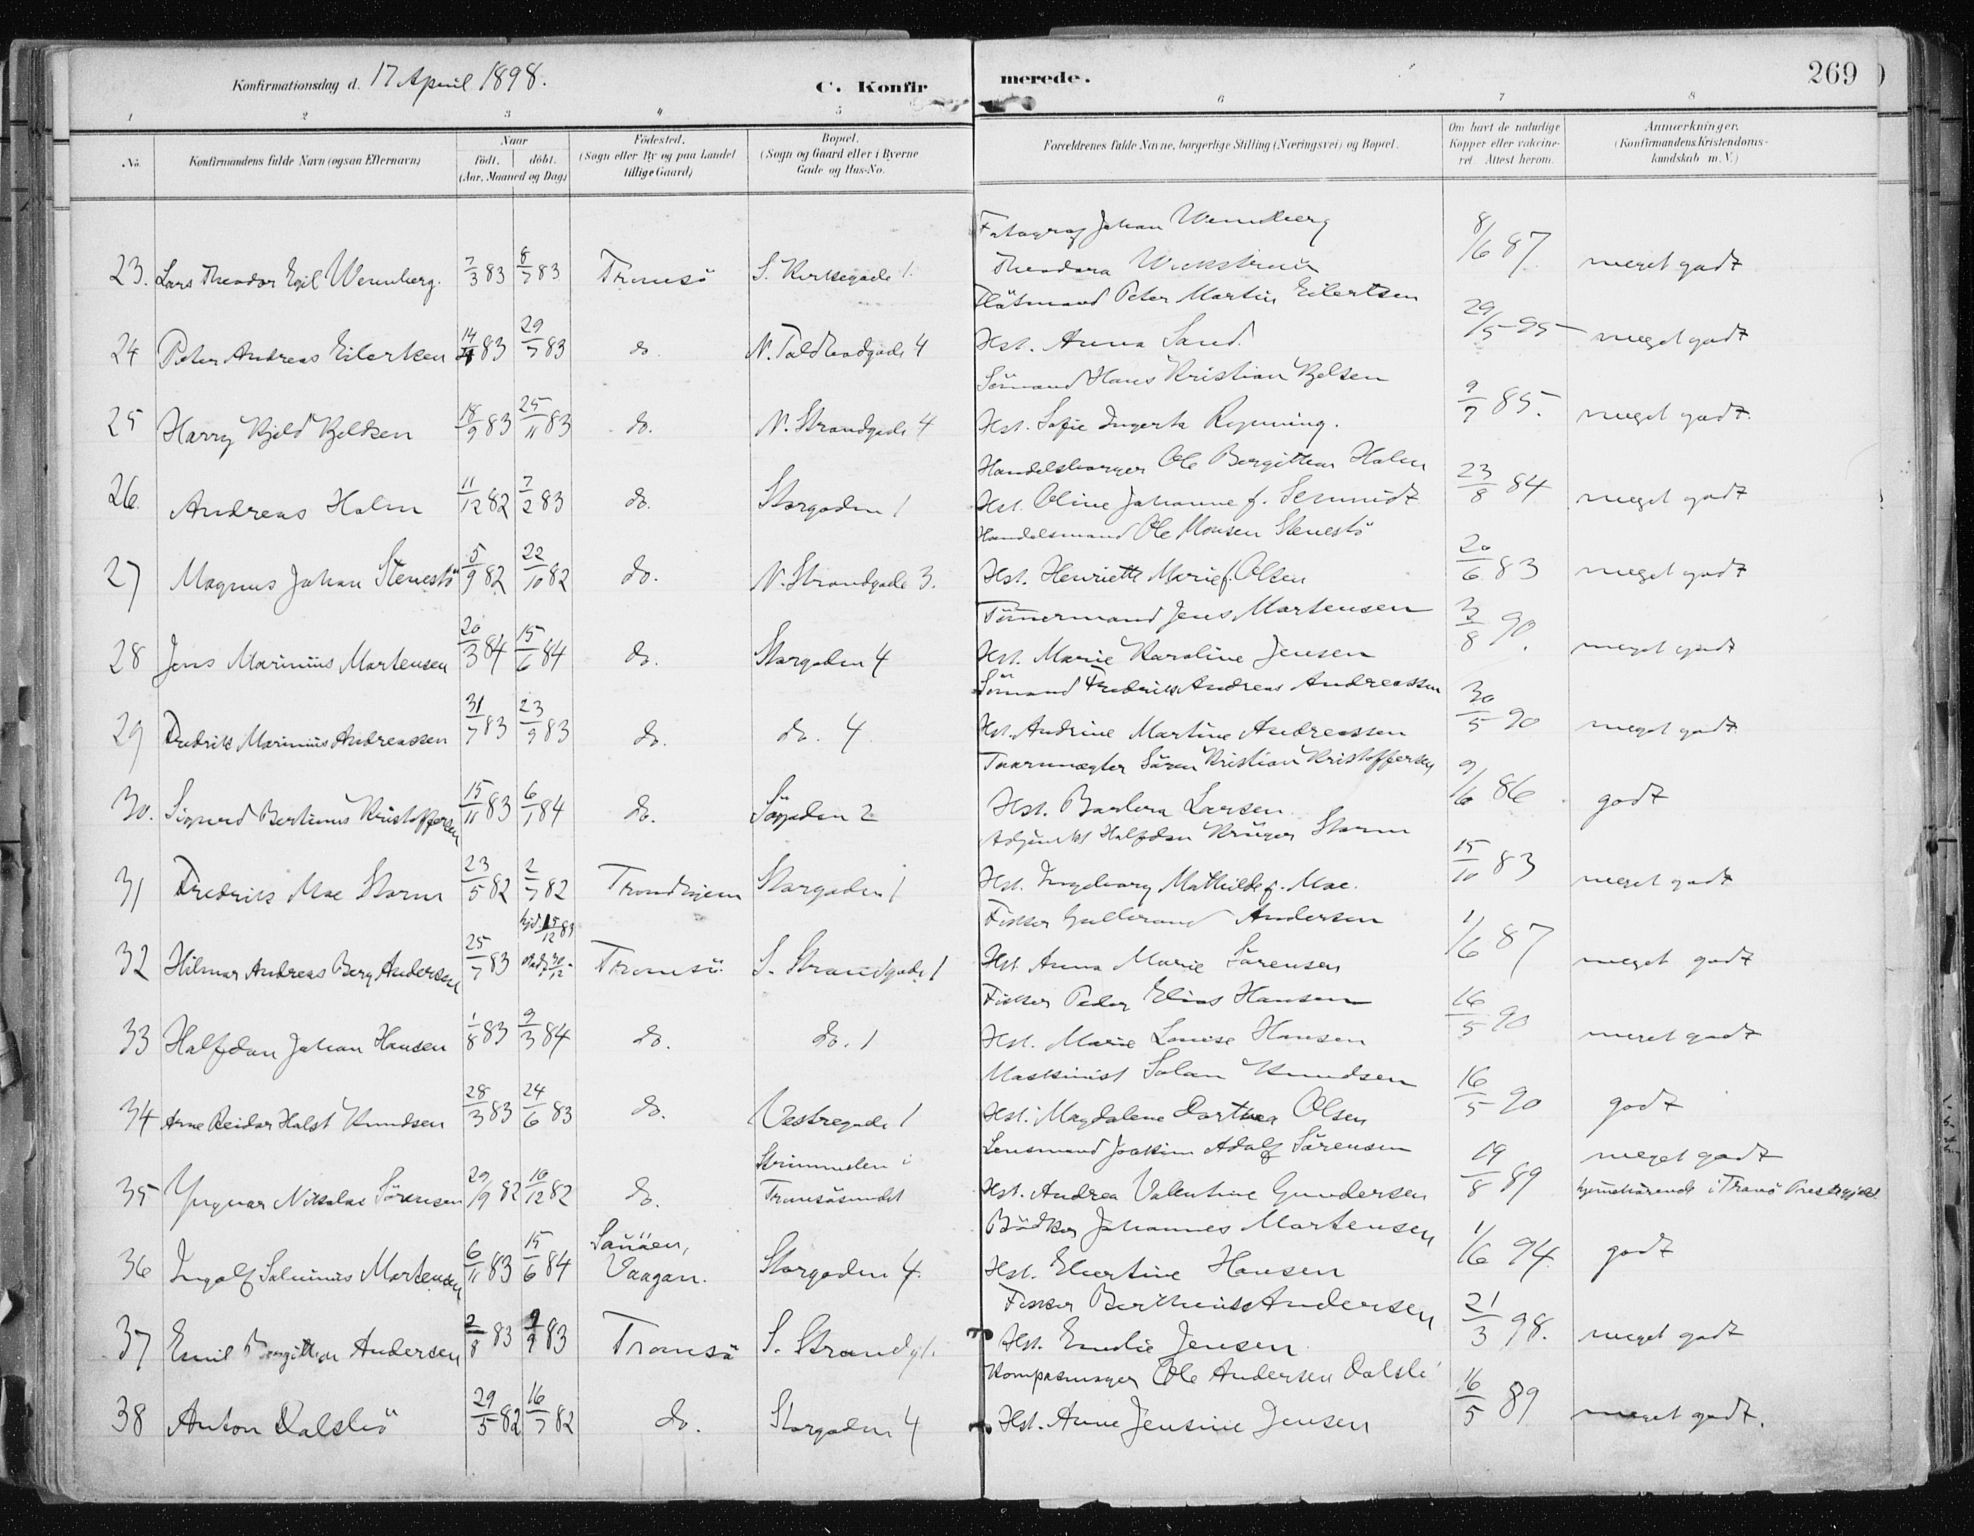 Konfirmationsdag d. 17 April 1898.
C. Konfirmerede.
269
1 2 3 4 5 6 7 8
No. Konfirmandens fulde Navn (ogsaa Efternavn) Naar født. døbt. (Aar, Maaned og Dag) Fødested. (Sogn eller By og paa Landet tillige Gaard) Bopæl. (Sogn og Gaard eller i Byerne Gade og Hus-No. Forældrenes fulde Navne, borgerlige Stilling (Næringsvei) og Bopæl. Om havt de naturlige Kopper eller vakcineret. Attest herom. Anmærkninger. (Konfirmandens Kristendomskundskab m. V.)
Fotograf Johan Wennberg
23. Lars Theodor Egil Wennberg. 7/3 83 8/7 83 Tromsö S. Kirkegade 1. Theodora 8/6 87 meget godt
Peter Martin Eilertsen
24 Peter Andreas Eilertsen 83 29/7 83 do. N. Toldbodgade 4 Hst. Anna Sand. 29/5 95 meget godt
Sömand Hans Kristian
25 Harry 18/9 83 25/11 83 do. N. Strandgade 4 Hst. Sofie 9/7 85. meget godt.
Handelsborger Ole Holm
26. Andreas Holm 11/12 82 7/2 83 do. Storgaden 1 Hst. Oline Johanne f. Schmidt 23/8 84 meget godt
Handelsmand Ole Monsen Stenestö
27 Magnus Johan Stenestö 5/9 82 22/10 82 do. N. Strandgade 3. Hst. Henriette Marie f. Olsen 20/6 83 meget godt
Tömermand Jens Martensen
28 Jens Marinius Martensen 20/3 84 15/6 84 do. Storgaden 4 Hst. Marie Karoline Jensen 3/8 90. meget godt
Sömand Fredrik Andreas Andreassen
29 Fredrik Marinius Andreassen 31/7 83 23/9 83 do. do. 4 Hst. Andrine Martine Andreassen 30/5 90 meget godt
Taarnvægter Sören Kristian Kristoffersen
30. Sigurd Bertinus Kristoffersen 15/11 83 6/1 84 do. Sögaden 2 Hst. Barbara Larsen 9/6 86 godt
Adjunkt Halfdan Krüger Storm
31 Fredrik Moe Storm 23/5 82 2/7 82 Trondhjem Storgaden 1 Hst. Ingeborg Mathilde f. Moe. 15/10 83 meget godt
Fisker Gulbrand Andersen
32 Hilmar Andreas Berg Andersen 25/7 83 Tromsö. S. Strandgade 1 Hst. Anna Marie Sörensen 1/6 87 meget godt
Fisker Peder Elias Hansen
33 Halfdan Johan Hansen 1/8 83 9/3 84 do. do. 1 Hst. Marie Louise Hansen 16/5 90 meget godt
Maskinist Knudsen
34 Arne Reidar Holst Knudsen 28/3 83 24/6 83 do. Vestregade 1 Hst. Magdalene Dorthea Olsen 16/5 90 godt
Strimmelen i Lensmand Joakim Adolf Sörensen meget godt
35 Yngvar Nikolai Sörensen 29/9 82 10/12 82 do. Tromsösundet Hst. Andrea Valentine Gundersen 19/8 89 hjemmehörende i Tranö Prestegjeld
Bödker Johannes Martensen
36 Ingolf Salvinus Martensen 6/11 83 15/6 84 Vaagan. Storgaden 4. Hst. Elvertine Hansen 1/6 94. godt
Fisker Andersen
37 Emil Andersen 2/8 83 83 Tromsö S. Strandg 1. Hst. Emelie Jensen 21/3 98. meget godt
Ole Andersen
38 Anton Dalslö 29/5 82 16/7 82 do. Storgaden 4 Hst. Anne Jensine Jensen 16/5 89 meget godt.